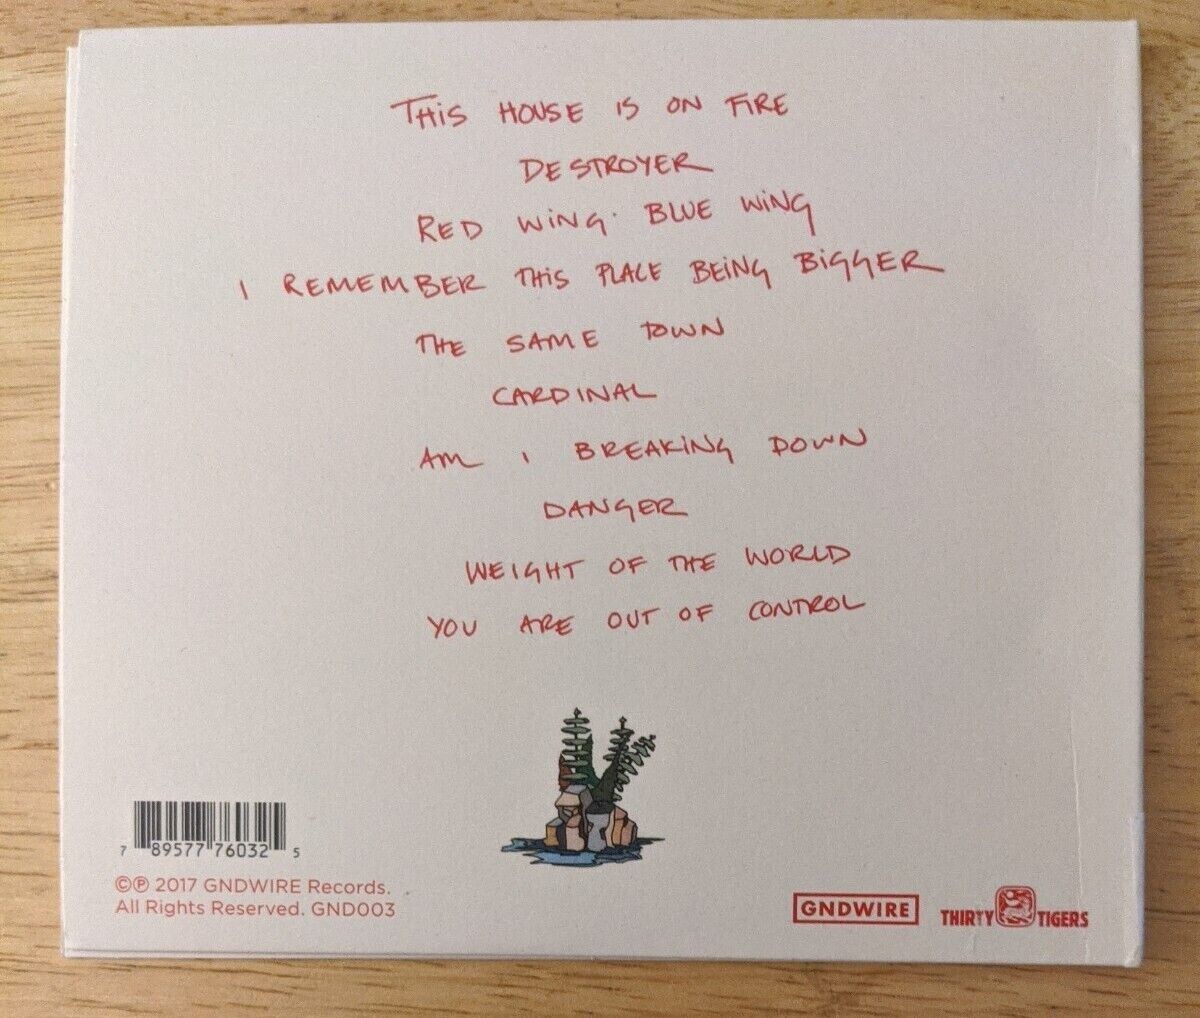 THIS HOUSE IS ON FIRE
DESTROYER
RED WING BLUE WING
I REMEMBER THIS PLACE BEING BIGGER
THE SAME TOWN
CARDINAL
AM I BREAKING DOWN
DANGER
WEIGHT OF THE WORLD
YOU ARE OUT OF CONTROL
7 89577 76032 5
©℗ 2017 GNDWIRE Records.
All Rights Reserved. GND003
GNDWIRE
THIRTY TIGERS